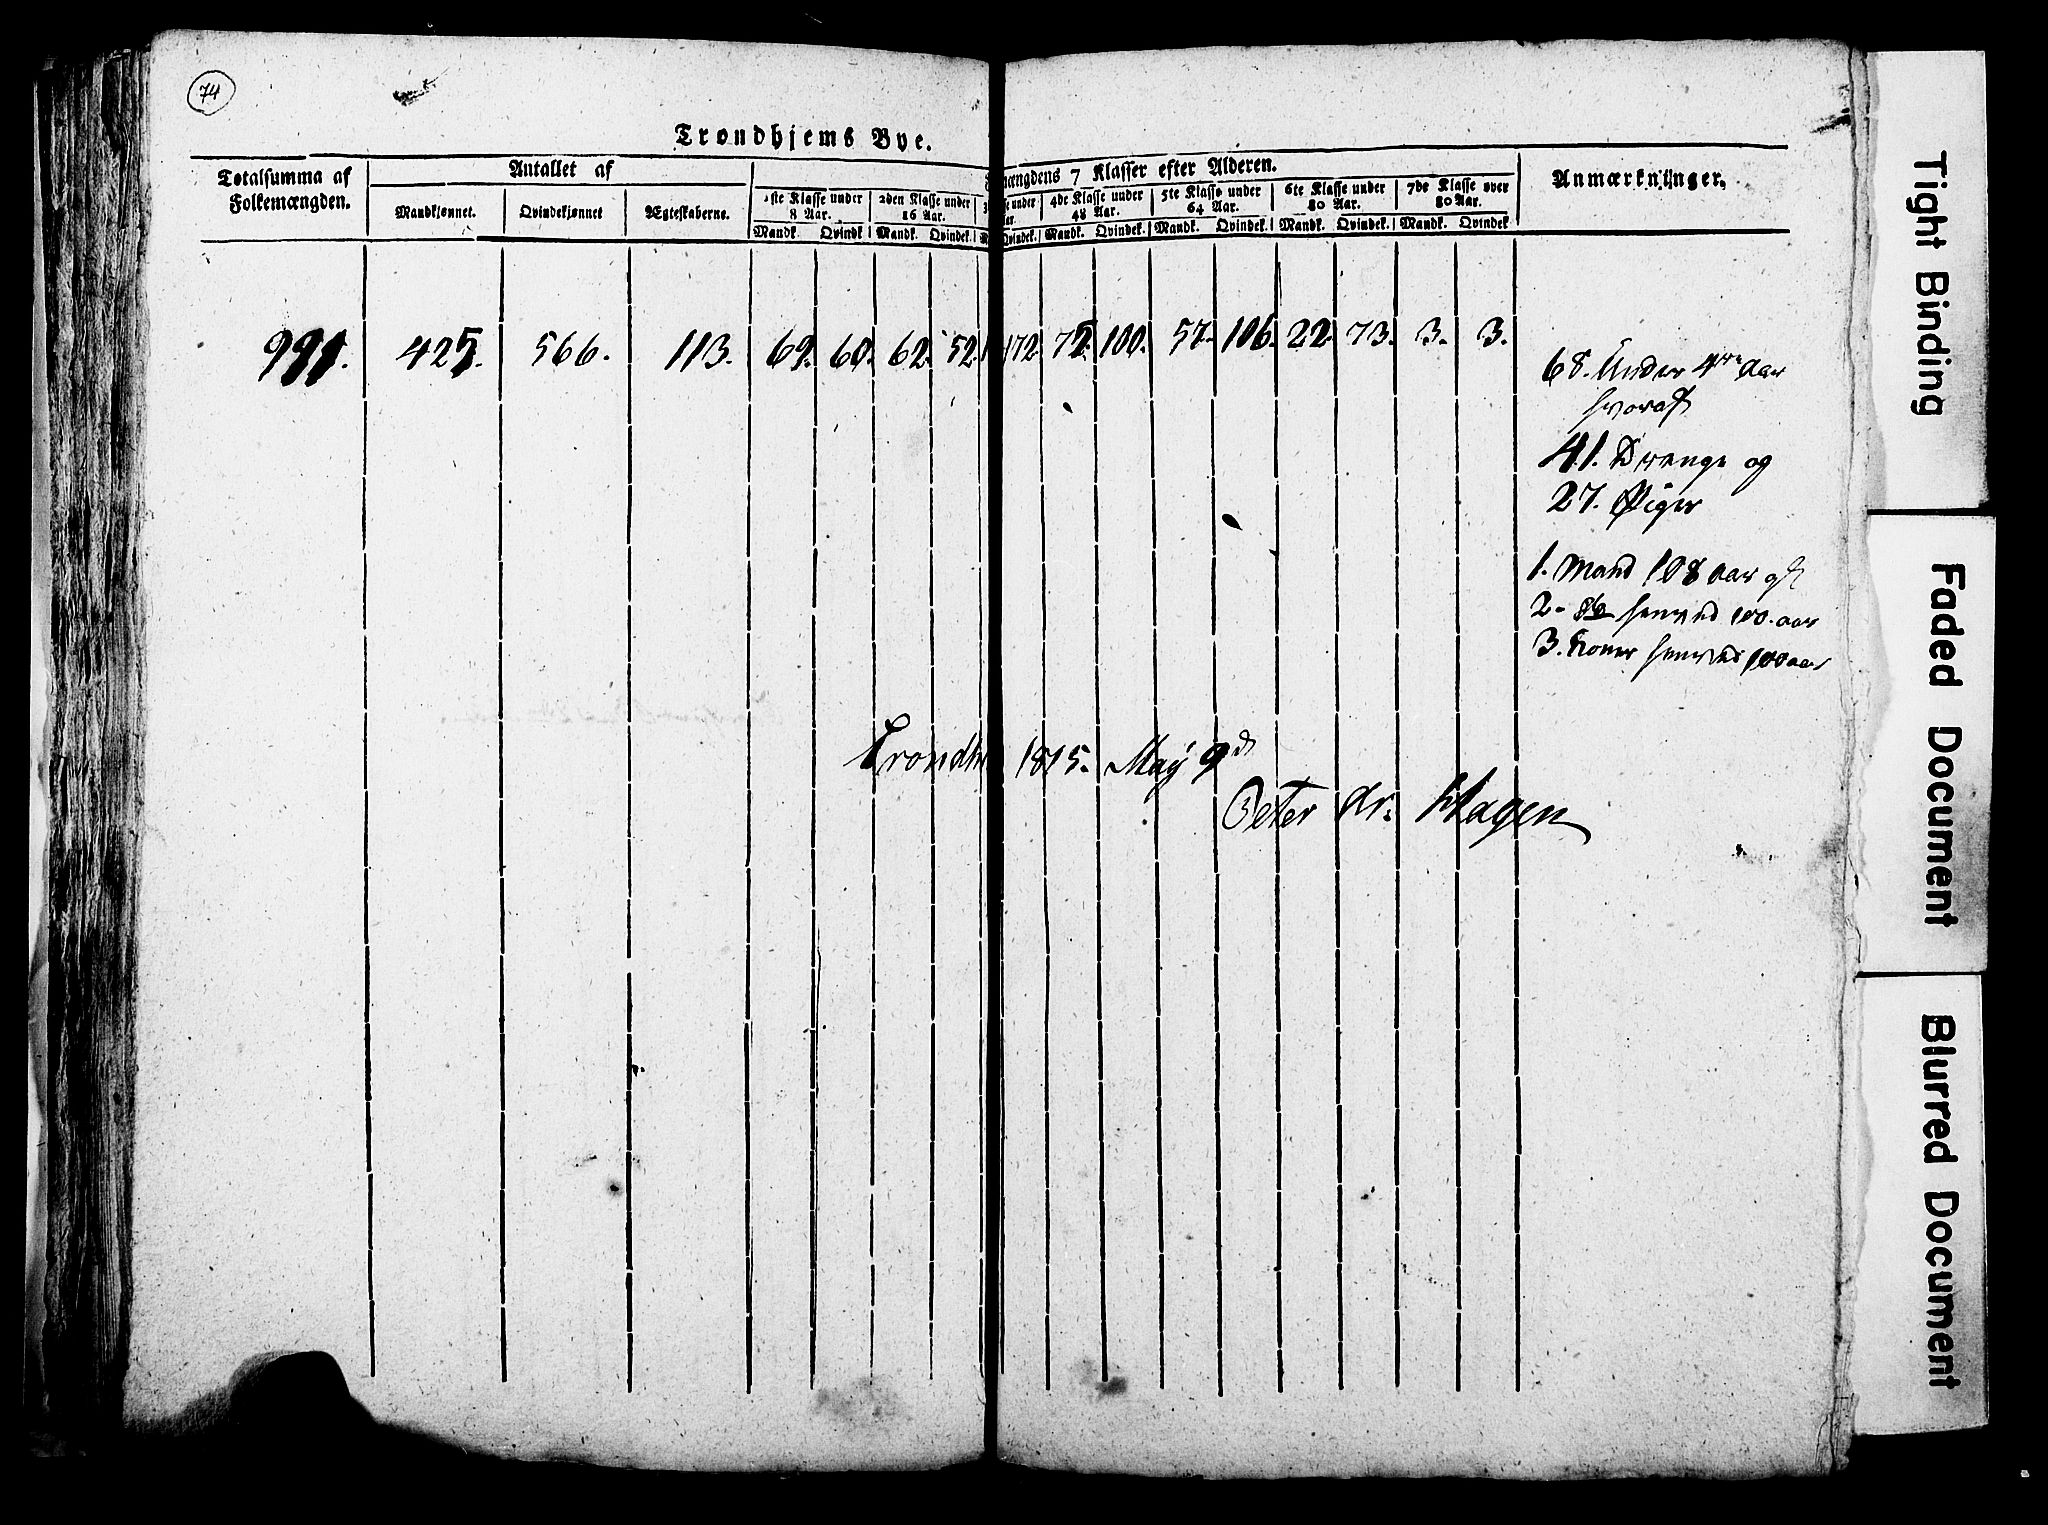 74
Trondhjems Bye.
Totalsumma af Folkemængden.
Antallet af
Mandkjønnet. Qvindekjønnet Ægteskaberne.
mængdens 7 Klasser efter Alderen.
1ste Klasse under 8 Aar.
2den Klasse under 16 Aar.
4de Klasse under 48 Aar.
5te Klasse under 64 Aar.
6te Klasse under 80 Aar.
7de Klasse over 80 Aar.
Anmærkninger.
Mandk. Qvindk Mandk. Qvindek. Qvindek. Mandk. Qvindek. Mandk. Qvindek. Mandk. Qvindek. Mandk. Qvindek
991. 425. 566. 113. 69. 60. 62. 52. 172. 72. 100. 57. 106. 22. 73. 3. 3.
68. Under 4re Aar
hvoraf
41. Drenge og
27. Piger
1. Mand 108 aar gl
2. henved 100. aar
3. Koner henved 100 aar
Trondh 1815. May 9d
Peter dr. Hagen
Tight Binding
Faded Document
Blurred Document